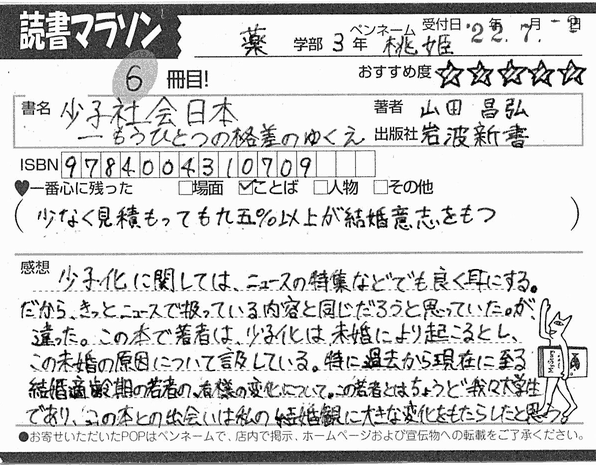 読書マラソン
薬 学部 3 年 ペンネーム 桃姫 受付日 '22年7月
6 冊目!
おすすめ度 ☆☆☆☆☆
書名 少子社会日本
―もうひとつの格差のゆくえ
著者 山田 昌弘
出版社 岩波新書
ISBN 9784004310709
♥一番心に残った □場面 ☑ことば □人物 □その他
(少なく見積もっても九五%以上が結婚意志をもつ)
感想 少子化に関しては、ニュースの特集などでも良く耳にする。
だから、きっとニュースで扱っている内容と同じだろうと思っていた。が、
違った。この本で著者は、少子化は未婚により起こるとし、
この未婚の原因について記している。特に過去から現在に至る
結婚適齢期の若者の、有様の変化について。この若者とはちょうど我々大学生
であり、この本との出会いは私の結婚観に大きな変化をもたらしたと思う。
●お寄せいただいたPOPはペンネームで、店内で掲示、ホームページおよび宣伝物への転載をご了承ください。